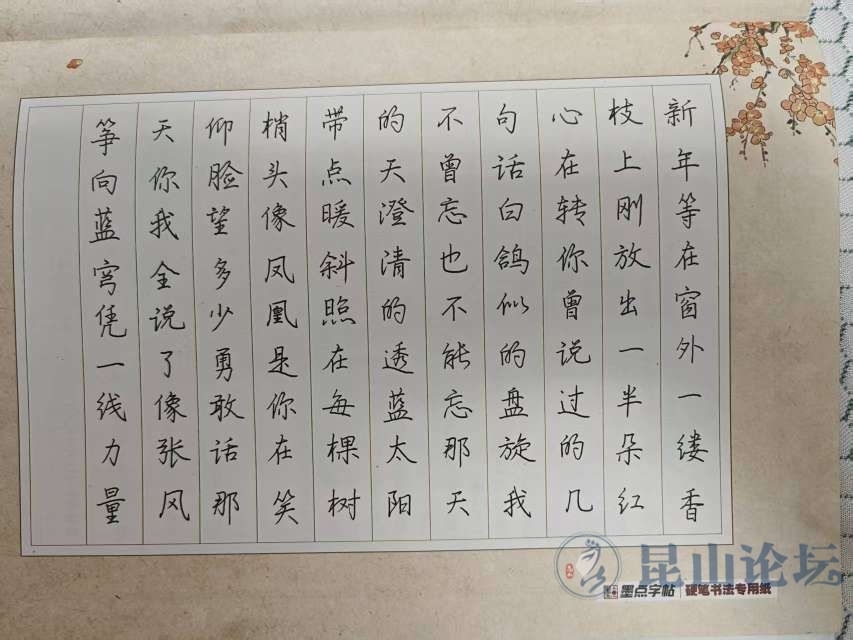 新年等在窗外一缕香
枝上刚放出一半朵红
心在转你曾说过的几
句话白鸽似的盘旋我
不曾忘也不能忘那天
的天澄清的透蓝太阳
带点暖斜照在每棵树
梢头像凤凰是你在笑
仰脸望多少勇敢话那
天你我全说了像张风
筝向蓝穹凭一线力量
昆山论坛
墨点字帖 硬笔书法专用纸